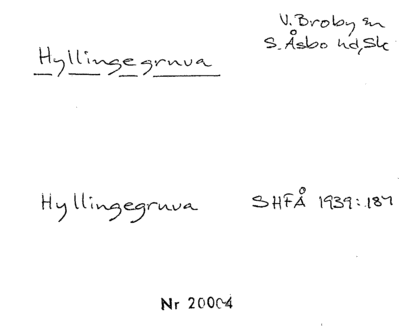 V. Broby sn
S. Åsbo hd, Sk
Hyllingegruva
Hyllingegruva SHFÅ 1939:187
Nr 20004